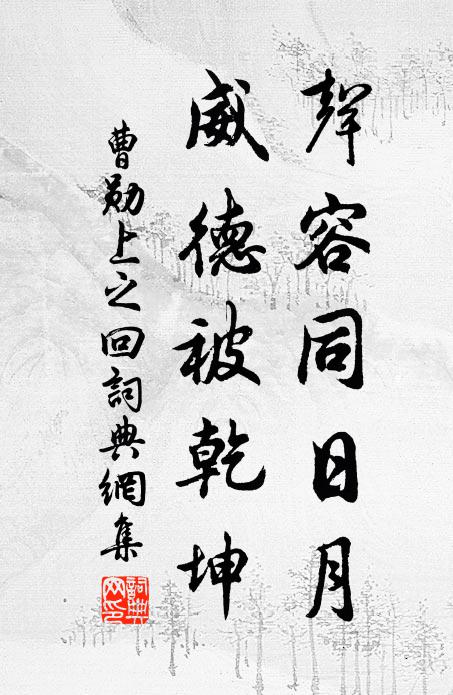 聲容同日月
威德被乾坤
曹勛上之回詞典網集
詞典网印